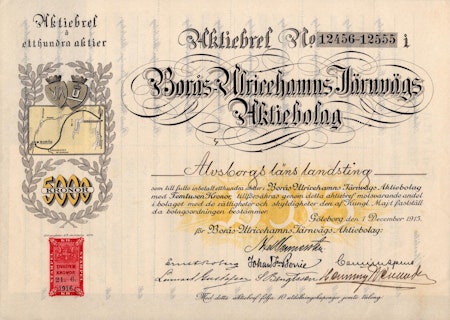 Aktiebref
à
etthundra aktier
Aktiebref No 12456-12555 i
Borås-Ulricehamns Järnvägs
Aktiebolag
Älvsborgs läns landsting
som till fullo inbetalt etthundra aktier i Borås-Ulricehamns Järnvägs Aktiebolag
med Femtusen Kronor tillförsäkras genom detta aktiebref motsvarande andel
i bolaget med de rättigheter och skyldigheter, den af Kungl. Maj:t fastställ
da bolagsordningen bestämmer.
Göteborg den 1 December 1915.
för Borås-Ulricehamns Järnvägs Aktiebolag:
5000
KRONOR
1916
Lennart Gustafson
Med detta aktiebref följa 10 utdelningskuponger jemte talong.